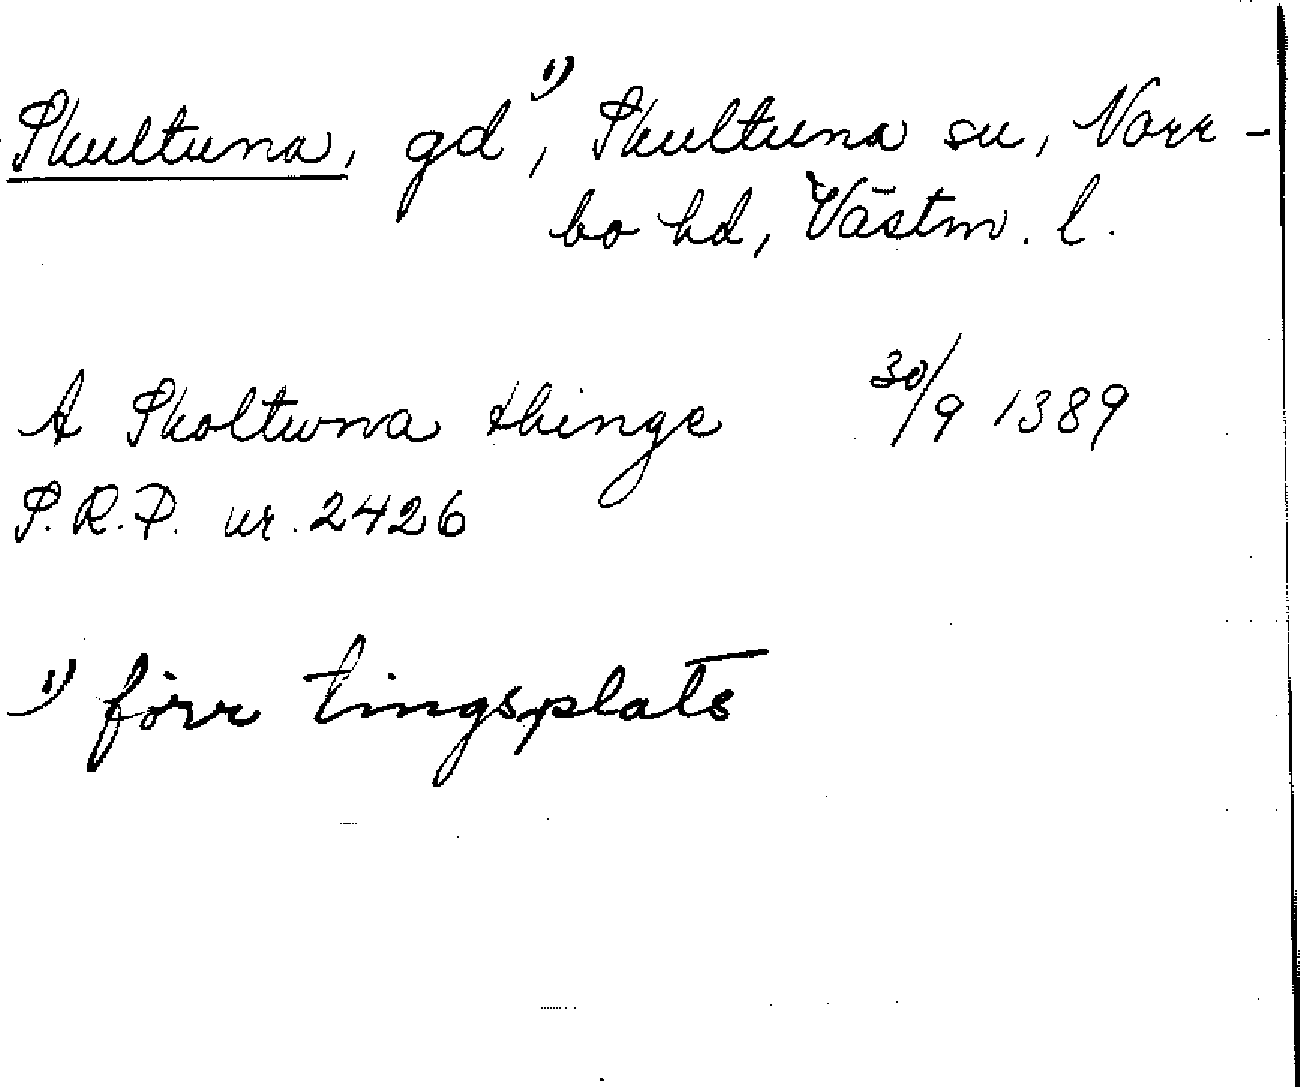 Skultuna, gd¹⁾, Skultuna sn, Norr-
bo hd, Västm. l.
A Skoltwna thinge 30/9 1389
S.R.P. nr. 2426
¹⁾ förr tingsplats